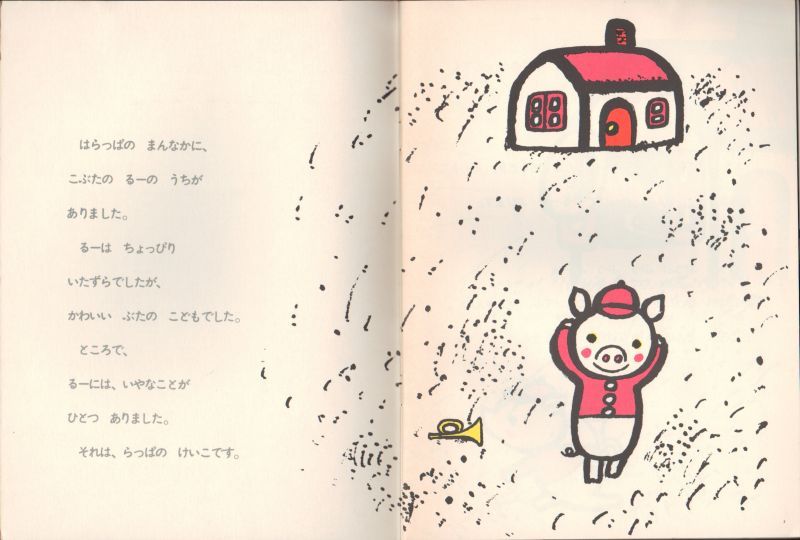 はらっぱの　まんなかに、
こぶたの　るーの　うちが
ありました。
るーは　ちょっぴり
いたずらでしたが、
かわいい　ぶたの　こどもでした。
ところで、
るーには、いやなことが
ひとつ　ありました。
それは、らっぱの　けいこです。